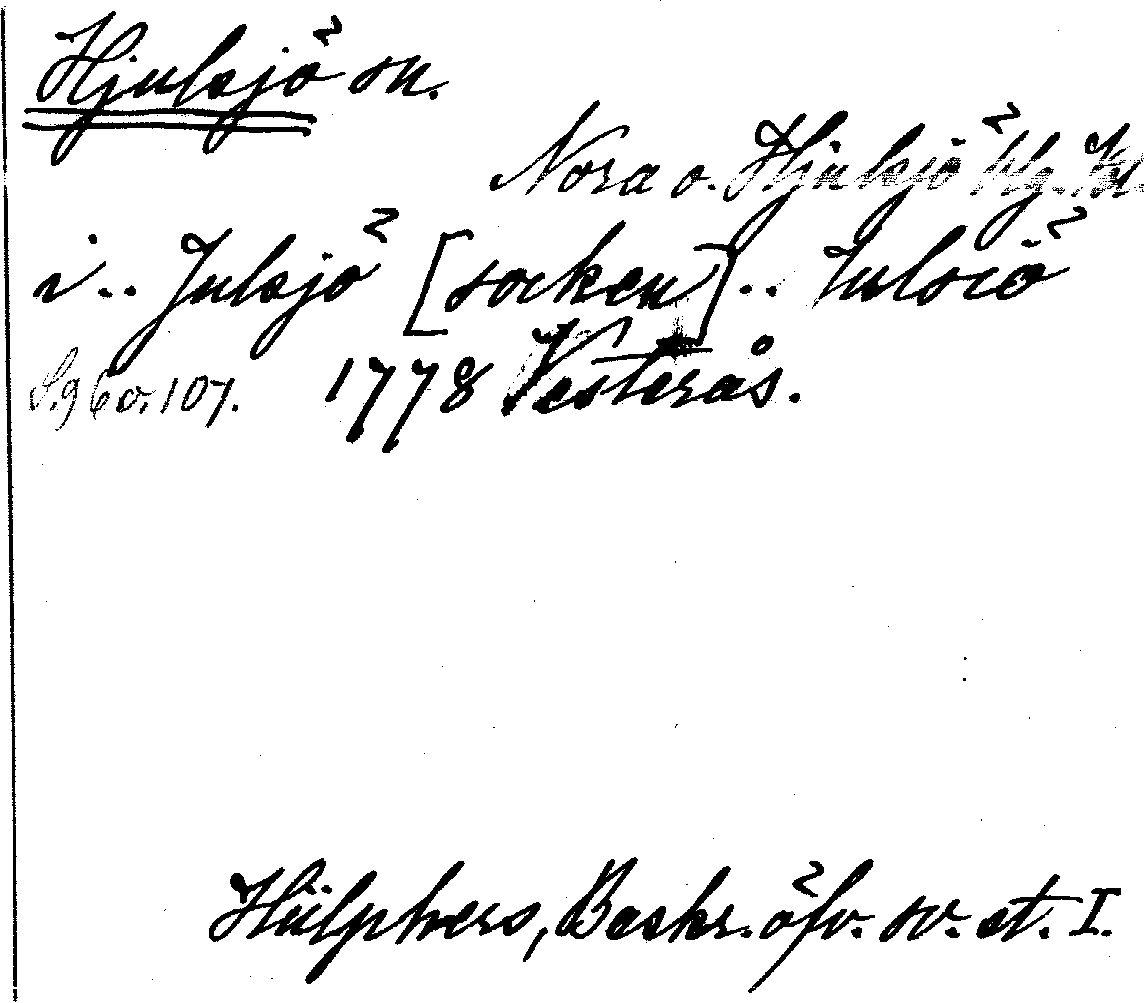 Hjulsjö sn.
Nora o. Hjulsjö blg. Ör.
i .. Julsjö [socken] .. Iulsiö
S. 96 o. 107. 1778 Vesterås.
Hülphers, Beskr. öfv. sv. st. I.